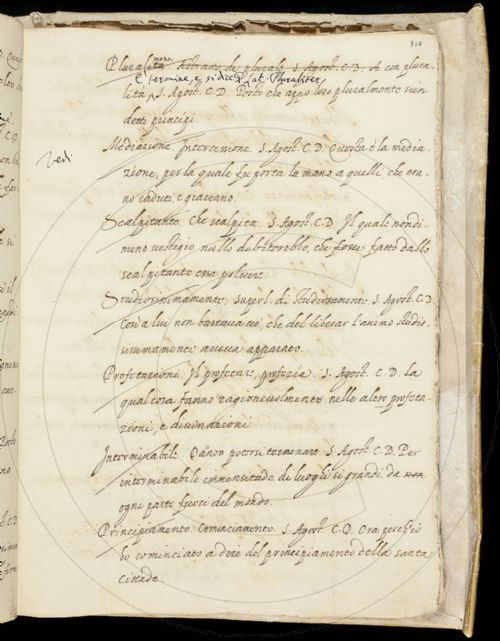 310
Pluralità Astratto di plurale. S. Agost. C. D. A con plura-
mente
È termine, e si dice Lat. Pluraliter
lità, S. Agost. C. D. Posto che appo loro pluralmente sien
detti principi.
Mediazione. Intercessione. S. Agost. C. D. Questa è la media-
vedi
zione, per la quale fu porta la mano a quelli, che era-
no caduti, e giaceano.
Scalpitante. Che scalpita. S. Agost. C. D. Il quale nondi-
meno vestigio nullo dubiterebbe, che fosse fatto dallo
scalpitante era polvere
Studiosissimamente. superl. di studiosamente. S. Agost. C. D.
Così a lui non bastava ciò, che del liberar l'animo studio-
sissimamente aveva apparato.
Profetazione. Il profetare, profezia. S. Agost. C. D. la
qual cosa fanno ragionevolmente nelle altre profeta-
zioni, e divinazioni
Interminabile. Da non potersi terminare. S. Agost. C. D. Per
interminabile immensitade di luoghi sì grandi da non
ogni parte fuori del mondo.
Principiamento. Cominciamento. S. Agost. C. D. Ora perch'io
ho cominciato a dire del principiamento della santa
cittade.